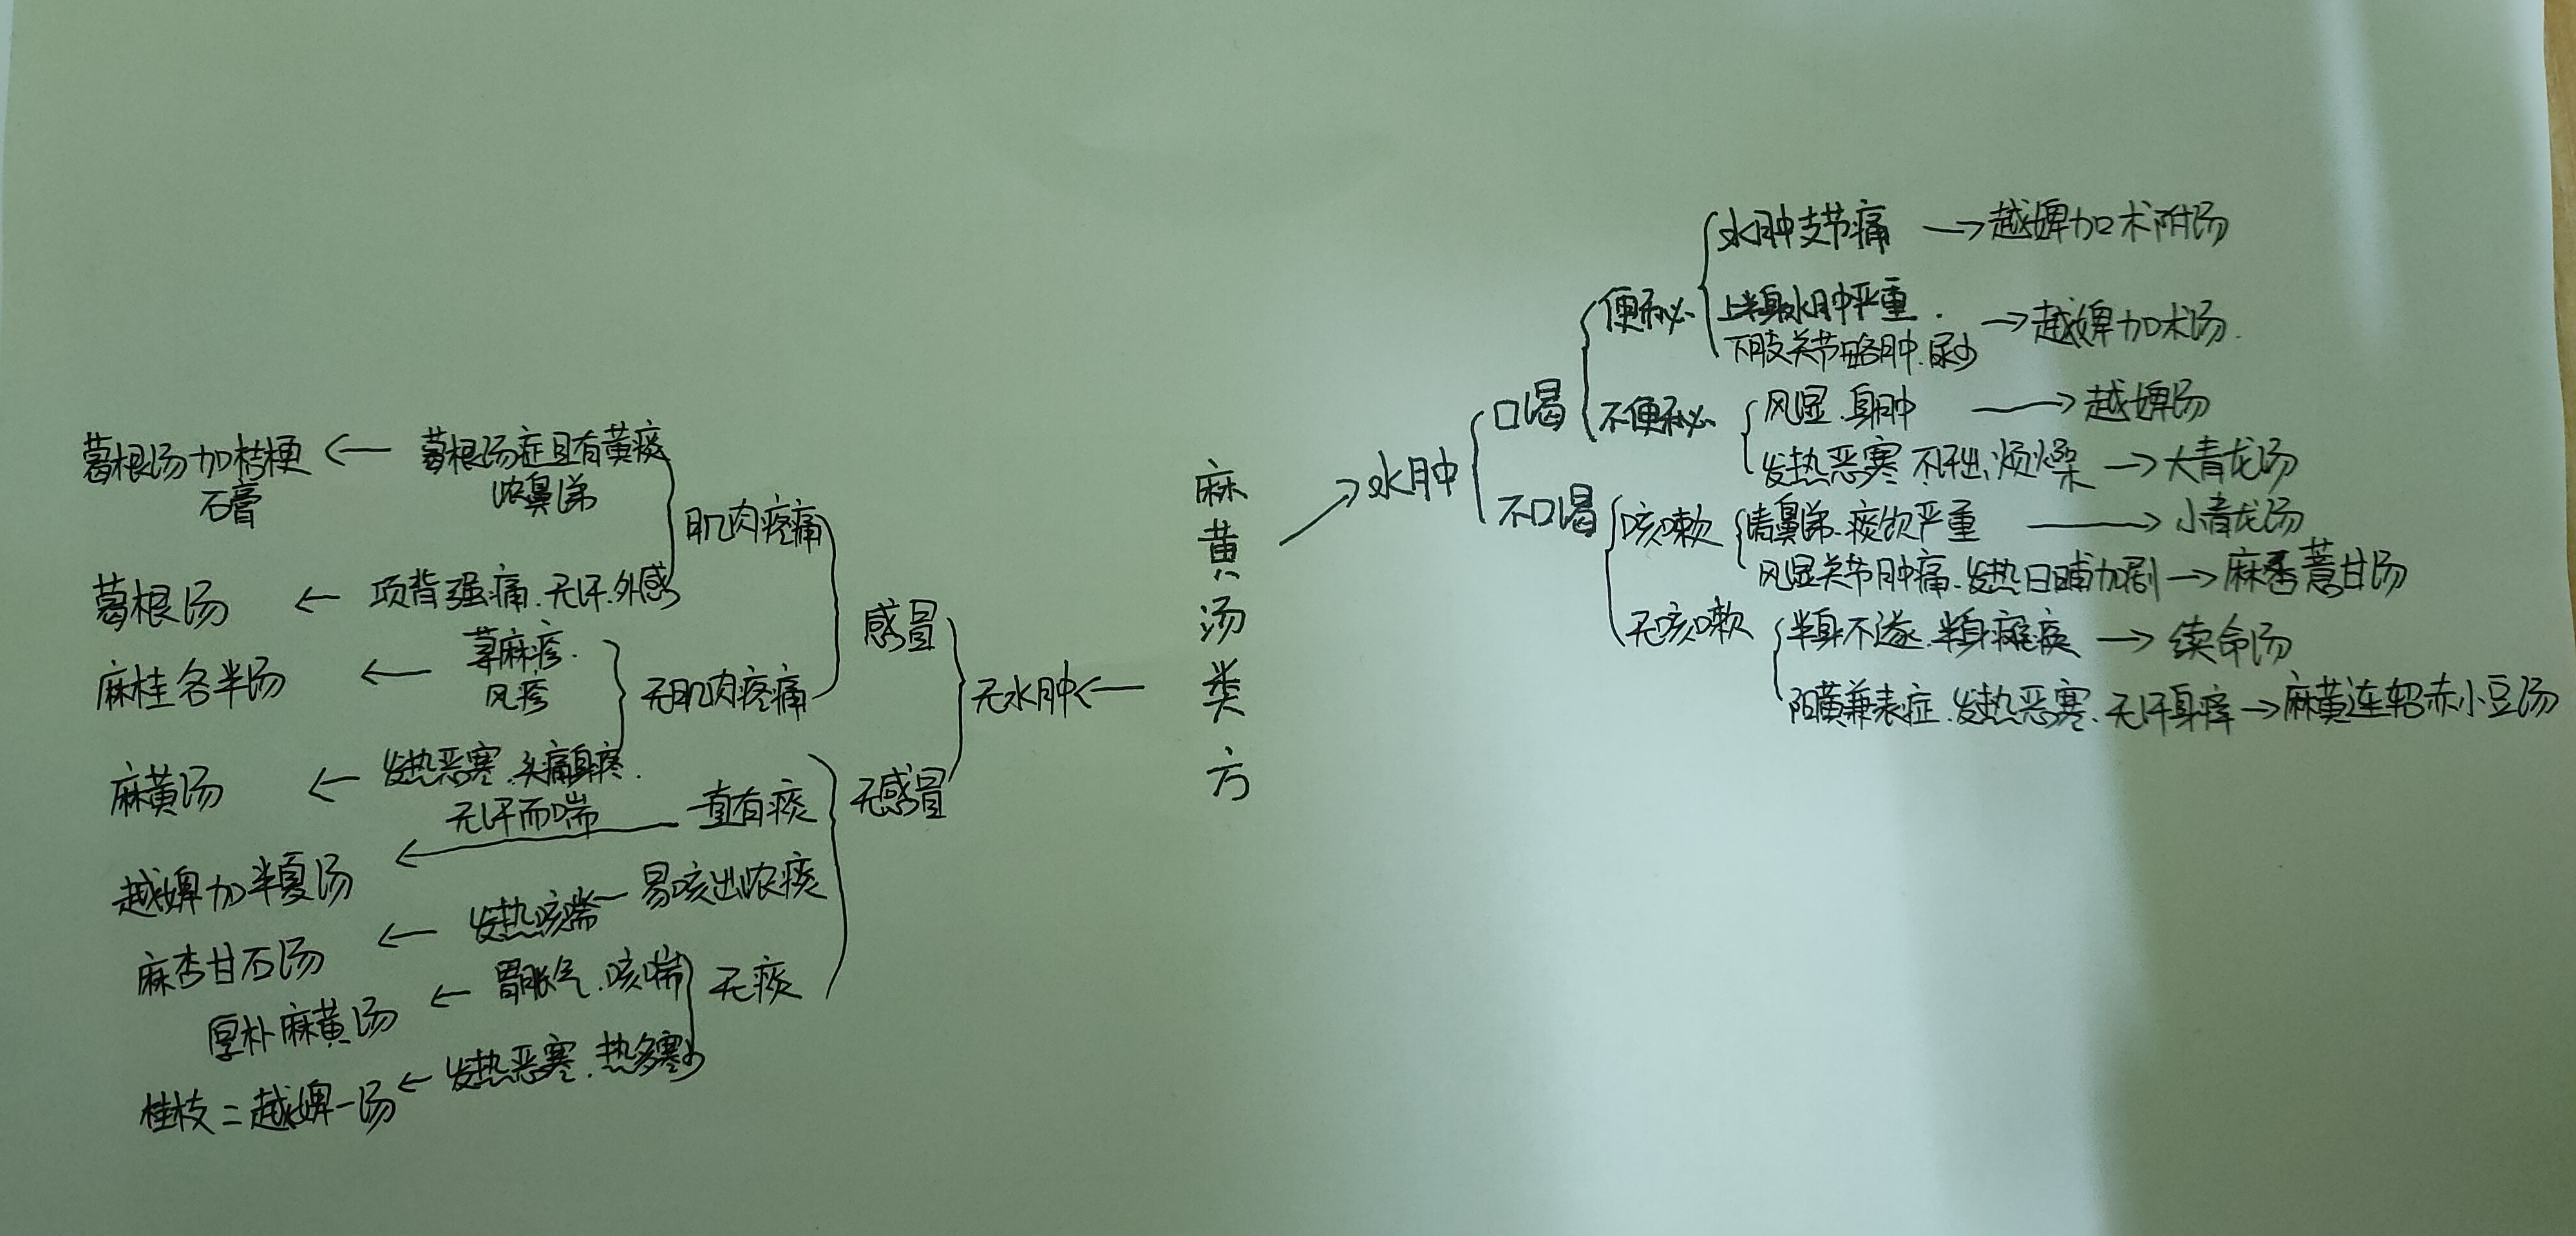 麻黄汤类方
水肿
口渴
便秘
水肿支节痛 → 越婢加术附汤
上半身水肿严重.
下肢关节略肿.尿少 → 越婢加术汤.
不便秘
风湿.身肿 → 越婢汤
发热恶寒 不汗出,烦燥 → 大青龙汤
不口渴
咳嗽
清鼻涕.痰饮严重 → 小青龙汤
风湿关节肿痛.发热日晡加剧 → 麻杏薏甘汤
无咳嗽
半身不遂.半身瘫痪 → 续命汤
阳黄兼表症.发热恶寒.无汗身痒 → 麻黄连轺赤小豆汤
无水肿
感冒
肌肉疼痛
葛根汤症且有黄痰
浓鼻涕
葛根汤加桔梗
石膏
项背强痛.无汗.外感
葛根汤
无肌肉疼痛
荨麻疹.
风疹
麻桂各半汤
发热恶寒.头痛身疼.
无汗而喘
麻黄汤
无感冒
一直有痰
越婢加半夏汤
易咳出浓痰
发热咳喘
麻杏甘石汤
无痰
胃胀气.咳喘
厚朴麻黄汤
发热恶寒.热多寒少
桂枝二越婢一汤